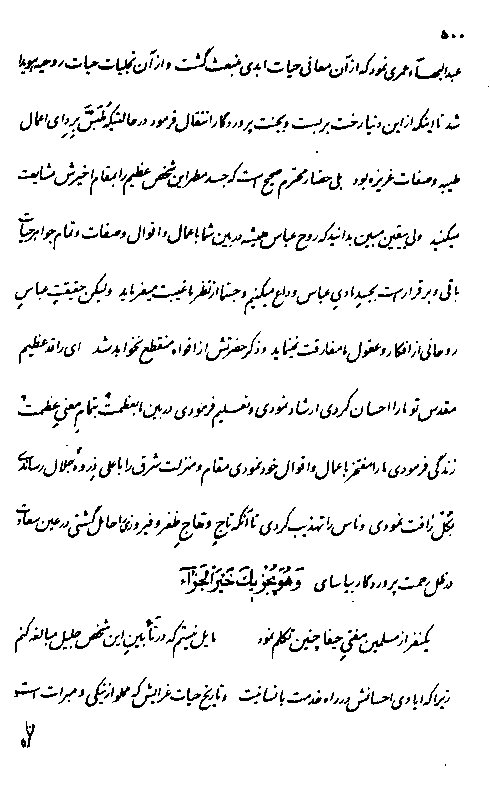 ۵۰۰
عبدالبهآء عمری نمود که از آن معانی حیات ابدی منبعث گشت و از آن تجلیات حیات روحیه هویدا
شد تا اینکه از این دنیا رخت بربست و بجنت پروردگار انتقال فرمود در حالتیکه متلبّس بردای اعمال
طیبه و صفات عزیزه بود بلی حضار محترم صحیح است که جسد مطهر این شخص عظیم را بمقام اخیرش مشایعت
میکنید ولی بیقین مبین بدانید که روح عباس همیشه در بین شما باعمال و اقوال و صفات و تمام جواهر حیات
باقی و برقرار است بجسد مادی عباس وداع میکنیم و جسماً از نظر ما غیبت میفرماید ولیکن حقیقت عباس
روحانی از افکار و عقول ما مفارقت ننماید و ذکر حضرتش از افواه منقطع نخواهد شد ای راقد عظیم
مقدس تو ما را احسان کردی ارشاد نمودی و تعلیم فرمودی در بین ما بعظمت بتمام معنی عظمت
زندگی فرمودی ما را مفتخر باعمال و اقوال خود نمودی مقام و منزلت شرق را باعلی ذروه جلال رساندی
رأفت نمودی و ناس را تهذیب کردی تا آنکه تاج ظفر و فیروزی حامل گشتی در عین سعادت
در ظل رحمت پروردگار بیاسای وَهُوَ يُجْزِيكَ خَيْرَ الْجَزَاءِ
یکنفر از مسلمین مفتی حیفا چنین تکلم نمود مایل نیستم که در تأبین این شخص جلیل مبالغه کنم
زیرا که ایادی احسانش در راه خدمت بانسانیت و تاریخ حیات غرایش که مملو از نیکی و مبرات است